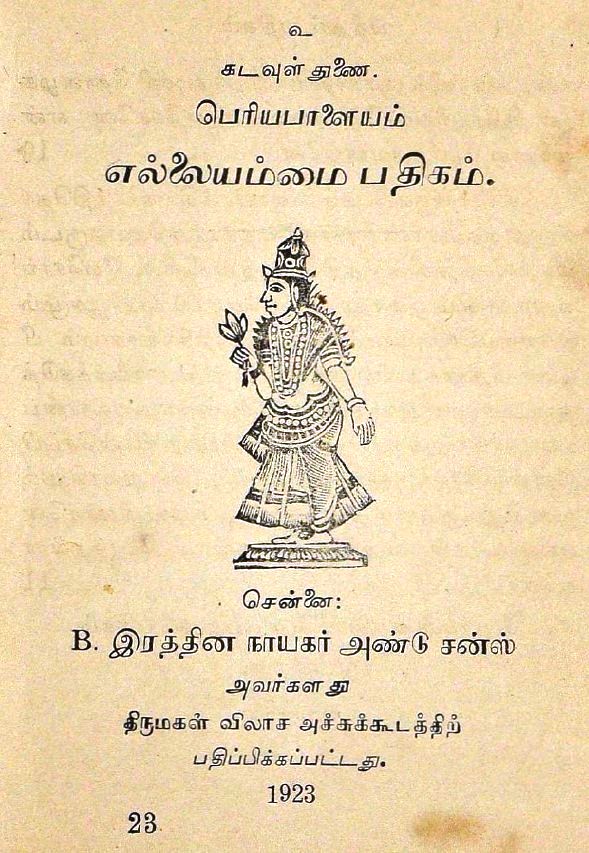 உ
கடவுள் துணை.
பெரியபாளையம்
எல்லையம்மை பதிகம்.
சென்னை:
B. இரத்தின நாயகர் அண்டு சன்ஸ்
அவர்களது
திருமகள் விலாச அச்சுக்கூடத்திற்
பதிப்பிக்கப்பட்டது.
1923
23